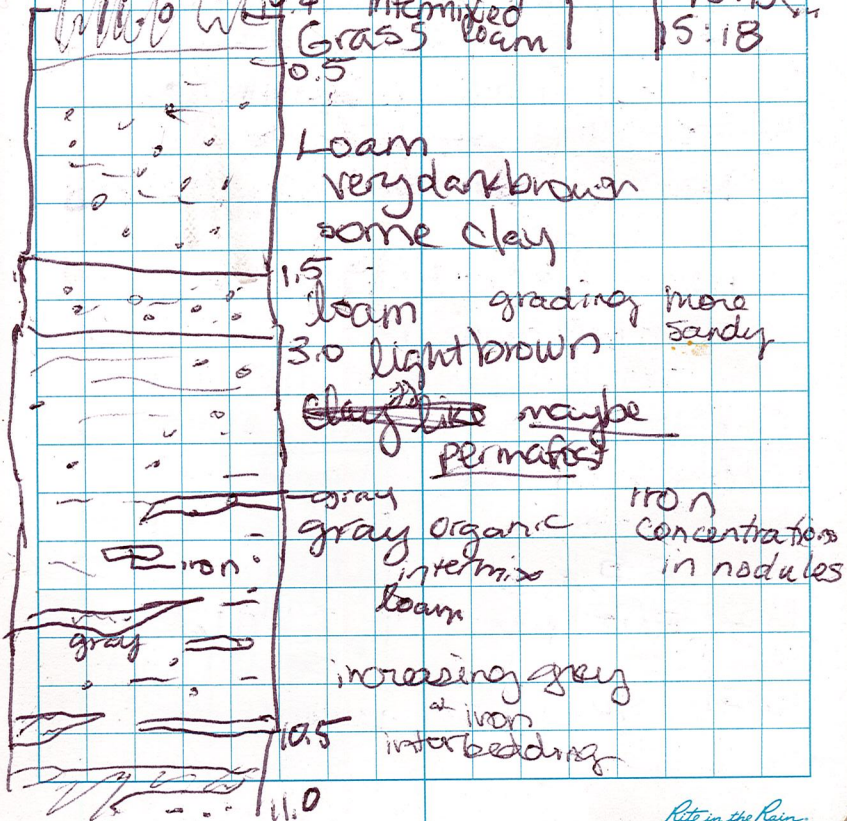 Intermixed
Grass loam
15:18
0.5
Loam
very dark brown
some clay
1.5
loam grading more
sandy
3.0 light brown
Clay like maybe
permafost
gray iron
gray organic concentrations
iron intermix in nodules
loam
gray
increasing grey
iron
10.5 interbedding
11.0
Rite in the Rain